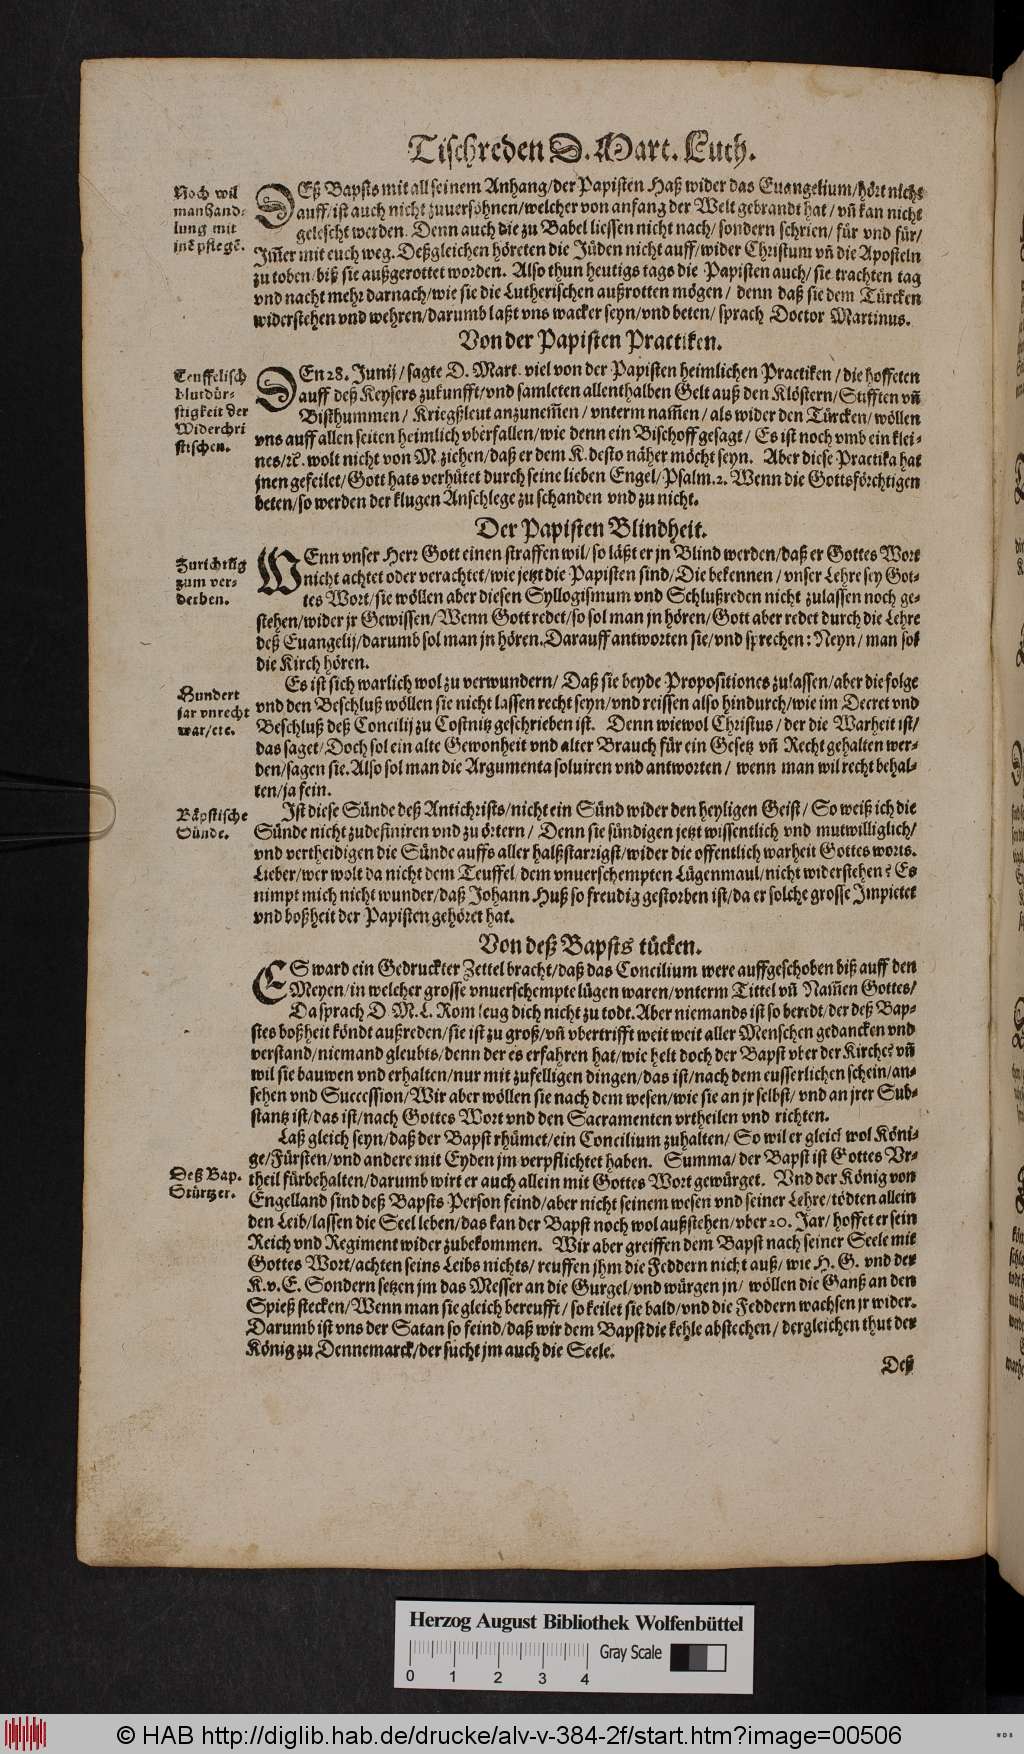 Tischreden D. Mart. Luth.
Noch wil
man hand-
lung mit
jnẽ pflegẽ.
DEß Bapsts mit all seinem Anhang/der Papisten Haß wider das Euangelium/hört nicht
auff/ist auch nicht zuuersöhnen/welcher von anfang der Welt gebrandt hat/ vñ kan nicht
gelescht werden. Denn auch die zu Babel liessen nicht nach/ sondern schrien/ für vnd für/
Im̃er mit euch weg. Deßgleichen höreten die Jüden nicht auff/wider Christum vñ die Aposteln
zu toben/biß sie außgerottet worden. Also thun heutigs tags die Papisten auch/ sie trachten tag
vnd nacht mehr darnach/wie sie die Lutherischen außrotten mögen/ denn daß sie dem Türcken
widerstehen vnd wehren/darumb laßt vns wacker seyn/vnd beten/ sprach Doctor Martinus.
Von der Papisten Practiken.
Teuffelisch
blutdür-
stigkeit der
Widerchri
stischen.
DEn 28. Junij/ sagte D. Mart. viel von der Papisten heimlichen Practiken/ die hoffeten
auff deß Keysers zukunfft/vnd samleten allenthalben Gelt auß den Klöstern/Stifften vñ
Bisthummen/ Kriegßleut anzunem̃en/ vnterm nam̃en/ als wider den Türcken/ wöllen
vns auff allen seiten heimlich vberfallen/wie denn ein Bischoff gesagt/ Es ist noch vmb ein klei-
nes/ꝛc. wolt nicht von M. ziehen/daß er dem K. desto näher möcht seyn. Aber diese Practika hat
jnen gefeilet/Gott hats verhütet durch seine lieben Engel/Psalm.2. Wenn die Gottsförchtigen
beten/so werden der klugen Anschlege zu schanden vnd zu nicht.
Der Papisten Blindheit.
Zurichtũg
zum ver-
derben.
WEnn vnser Herr Gott einen straffen wil/ so läßt er jn Blind werden/daß er Gottes Wort
nicht achtet oder verachtet/wie jetzt die Papisten sind/Die bekennen/ vnser Lehre sey Got-
tes Wort/sie wöllen aber diesen Syllogismum vnd Schlußreden nicht zulassen noch ge-
stehen/wider jr Gewissen/Wenn Gott redet/so sol man jn hören/Gott aber redet durch die Lehre
deß Euangelij/darumb sol man jn hören. Darauff antworten sie/vnd sprechen: Neyn/ man sol
die Kirch hören.
Hundert
jar vnrecht
war/etc.
Es ist sich warlich wol zu verwundern/ Daß sie beyde Propositiones zulassen/aber die folge
vnd den Beschluß wöllen sie nicht lassen recht seyn/vnd reissen also hindurch/wie im Decret vnd
Beschluß deß Concilij zu Costnitz geschrieben ist. Denn wiewol Christus/ der die Warheit ist/
das saget/Doch sol ein alte Gewonheit vnd alter Brauch für ein Gesetz vñ Recht gehalten wer-
den/sagen sie. Also sol man die Argumenta soluiren vnd antworten/ wenn man wil recht behal-
ten/ja fein.
Bäpstische
Sünde.
Ist diese Sünde deß Antichrists/nicht ein Sünd wider den heyligen Geist/ So weiß ich die
Sünde nicht zudefiniren vnd zu örtern/ Denn sie sündigen jetzt wissentlich vnd mutwilliglich/
vnd vertheidigen die Sünde auffs aller halßstarrigst/wider die offentlich warheit Gottes worts.
Lieber/wer wolt da nicht dem Teuffel/dem vnuerschempten Lügenmaul/nicht widerstehen? Es
nimpt mich nicht wunder/daß Johann Huß so freudig gestorben ist/da er solche grosse Impietet
vnd boßheit der Papisten gehöret hat.
Von deß Bapsts tücken.
ES ward ein Gedruckter Zettel bracht/daß das Concilium were auffgeschoben biß auff den
Meyen/in welcher grosse vnuerschempte lügen waren/vnterm Tittel vñ Nam̃en Gottes/
Da sprach D. M. L. Rom leug dich nicht zu todt. Aber niemands ist so beredt/der deß Bap-
stes boßheit köndt außreden/sie ist zu groß/vñ vbertrifft weit weit aller Menschen gedancken vnd
verstand/niemand gleubts/denn der es erfahren hat/wie helt doch der Bapst vber der Kirche? vñ
wil sie bauwen vnd erhalten/nur mit zufelligen dingen/das ist/nach dem eusserlichen schein/an-
sehen vnd Succession/Wir aber wöllen sie nach dem wesen/wie sie an jr selbst/ vnd an jrer Sub-
stantz ist/das ist/nach Gottes Wort vnd den Sacramenten vrtheilen vnd richten.
Laß gleich seyn/daß der Bapst rhümet/ein Concilium zuhalten/ So wil er gleich wol Köni-
ge/Fürsten/vnd andere mit Eyden jm verpflichtet haben. Summa/ der Bapst ist Gottes Vr-
Deß Bap.
Stürtzer.
theil fürbehalten/darumb wirt er auch allein mit Gottes Wort gewürget. Vnd der König von
Engelland sind deß Bapsts Person feind/aber nicht seinem wesen vnd seiner Lehre/tödten allein
den Leib/lassen die Seel leben/das kan der Bapst noch wol außstehen/vber 20. Jar/ hoffet er sein
Reich vnd Regiment wider zubekommen. Wir aber greiffen dem Bapst nach seiner Seele mit
Gottes Wort/achten seins Leibs nichts/ reuffen jhm die Feddern nicht auß/ wie H. G. vnd der
K.v.E. Sondern setzen jm das Messer an die Gurgel/vnd würgen jn/ wöllen die Ganß an den
Spieß stecken/Wenn man sie gleich bereufft/ so keilet sie bald/vnd die Feddern wachsen jr wider.
Darumb ist vns der Satan so feind/daß wir dem Bapst die kehle abstechen/ dergleichen thut der
König zu Dennemarck/der sucht jm auch die Seele.
Deß
Herzog August Bibliothek Wolfenbüttel
Gray Scale
0 1 2 3 4
© HAB http://diglib.hab.de/drucke/alv-v-384-2f/start.htm?image=00506